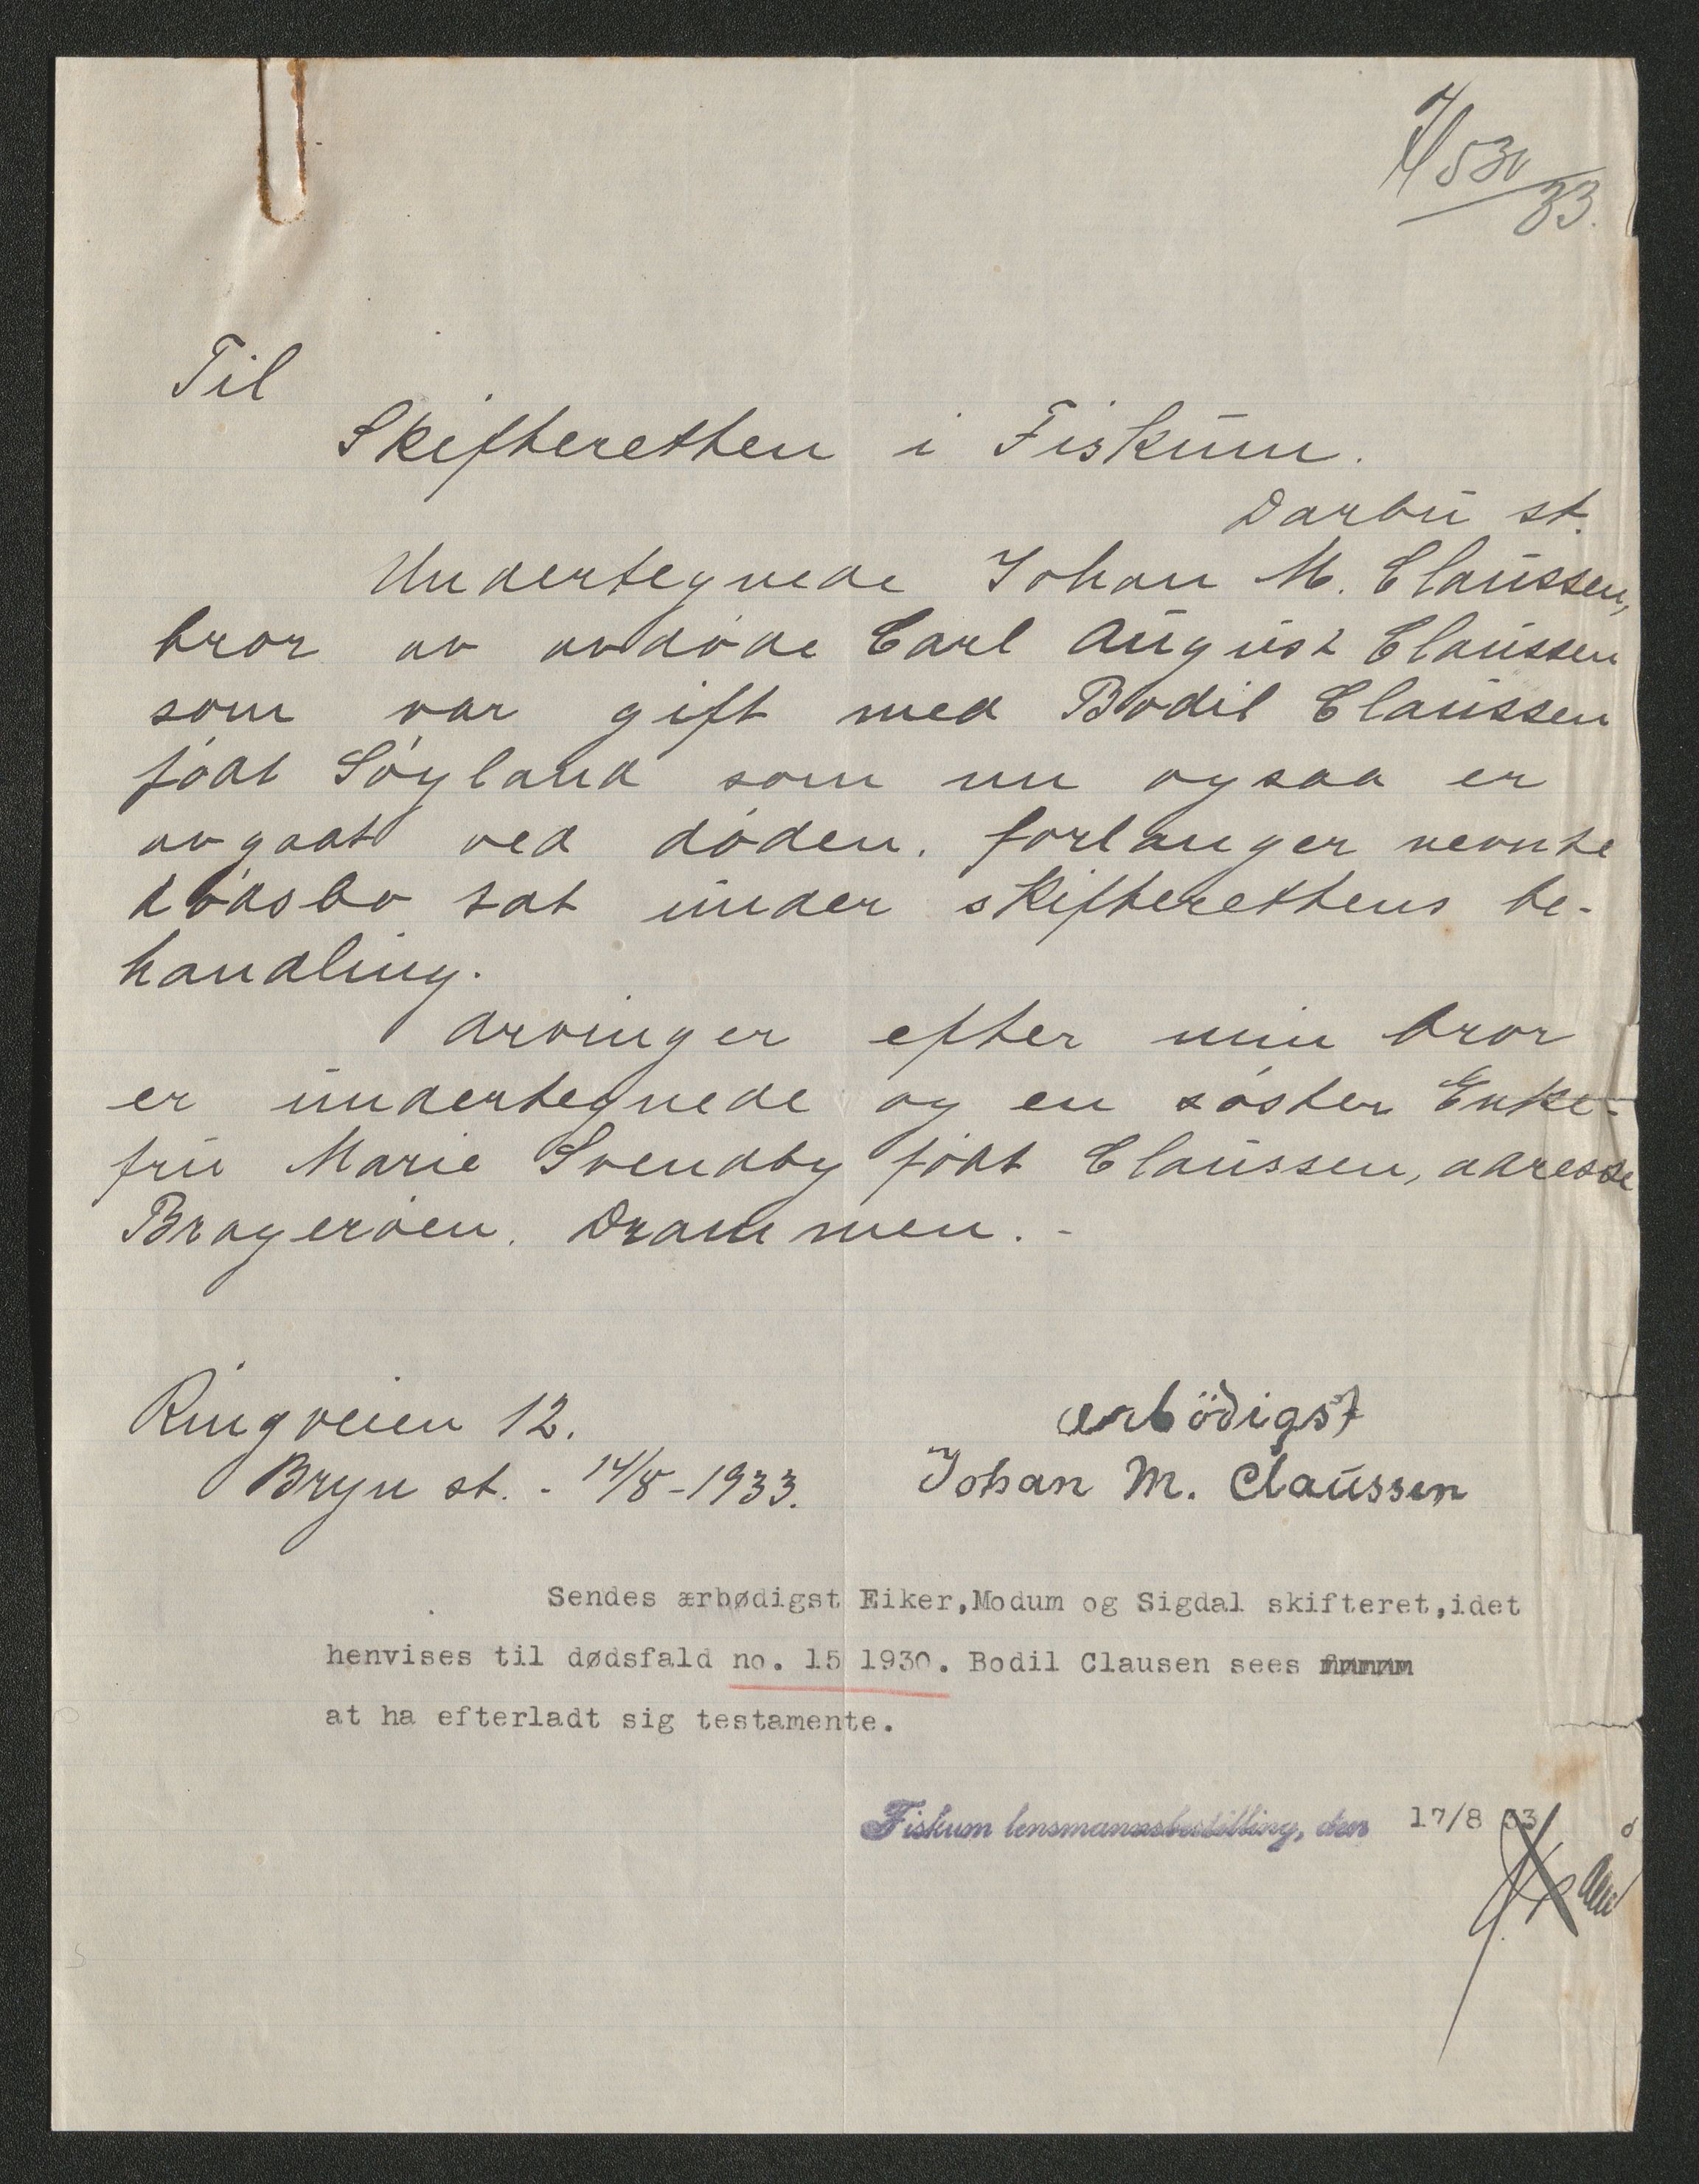 530/33.
Til
Skifteretten i Fiskum.
Darbu st.
Undertegnede Johan M. Claussen,
bror av avdøde Carl August Claussen
som var gift med Bodil Claussen
født Søyland som nu ogsaa er
avgaat ved døden. forlanger nevnte
dødsbo sat under skifterettens be-
handling.
Arvinger efter min bror
er undertegnede og en søster Enke-
fru Marie Svendby født Claussen, adresse
Bragerøen. Drammen. -
Ringveien 12.
Bryn st. - 14/8-1933.
ærbödigst
Johan M. Claussen
Sendes ærbødigst Eiker,Modum og Sigdal skifteret,idet
henvises til dødsfald no. 15 1930. Bodil Clausen sees
at ha efterladt sig testamente.
Fiskum lensmannsbestilling, den 17/8 33